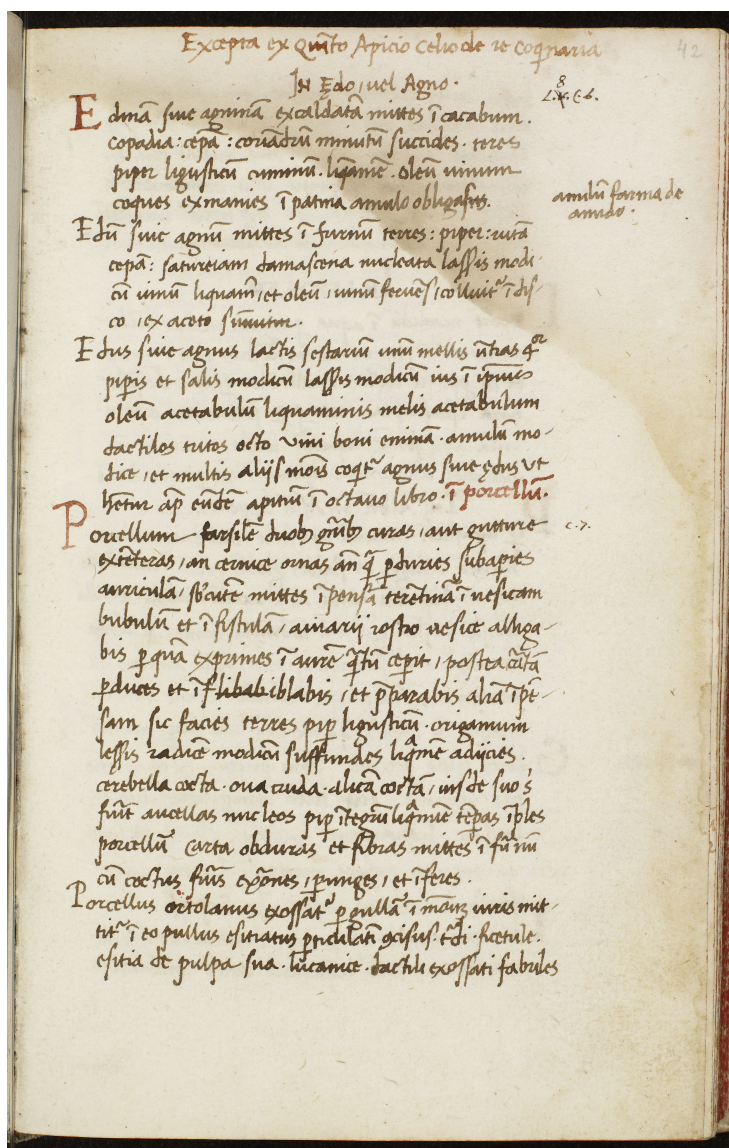 Excepta ex Quīto Apicio Celio de re Coqīnaria
42
IN Ędo, vel Agno.
8
L. C. 6.
Edinā sive agninā excaldatā mittes ī cacabum.
copadia: cepā: coriādrū minutū succides. teres
piper ligusticū cuminū. liqīamē. oleū uinum
coques exinanies ī patina amulo obligas.
amilū farina de
amido.
Edū sive agnū mittes ī furnū terres: piper: rutā
cepā: satureiam damascena nucleata lassis modi-
cū uinū liquamē, et oleū, uinū feruēs, colluit² ī dis-
co, ex aceto sumitur.
Edus sive agnus lactis sestariū unū mellis ūtias 4or
pip̄is et salis modicū lassis modicū ius ī ip̄ius
oleū acetabulū liquaminis melis acetabulum
dactilos tritos octo vini boni eminā. amulū mo-
dice, et multis aliis mōis coqit² agnus sive ędus ut
hētur ap̄ eūdē apitiū ī octauo libro. ī porcellū.
Porcellum farsilē duobȝ gn̄ibȝ curas, aut gutture
c. 7.
extēteras, an ceruice ornas an̄ q̄ p̱duries subap̱ies
auriculā, sb̄ cutē mittes īpensā terētinā ī uesicam
bubulū et ī fistulā, auiarii rostro uesice alliga-
bis p̱ quam exprimes ī aurē q̄tū cep̱it, postea cartā
p̱duces et īflibabiblabis, et p̄parabis aliā īpē-
sam sic facies terres pip̱ ligusticū. origanum
lessis radicē modicū suffundes liq̄mē adiicies.
cerebella cocta. oua cruda. alicā coctā, ius de suo s̄
fuīt aucellas nucleos pip̱ ītegrū liq̄mīe tēp̱as īples
porcellū carta obduras et fibras mittes ī fūnū
cū coctus fuīs exōnes, p̱unges, et īferes.
Porcellus ortolanus exossat² p̱ gullā ī mōuȝ uiris mit-
tit² ī eo pullus esitiatus p̱ticulatī ꝯcisus. t̄di. ficetule.
esitia de pulpa sua. lucanice. dactili exossati fabriles